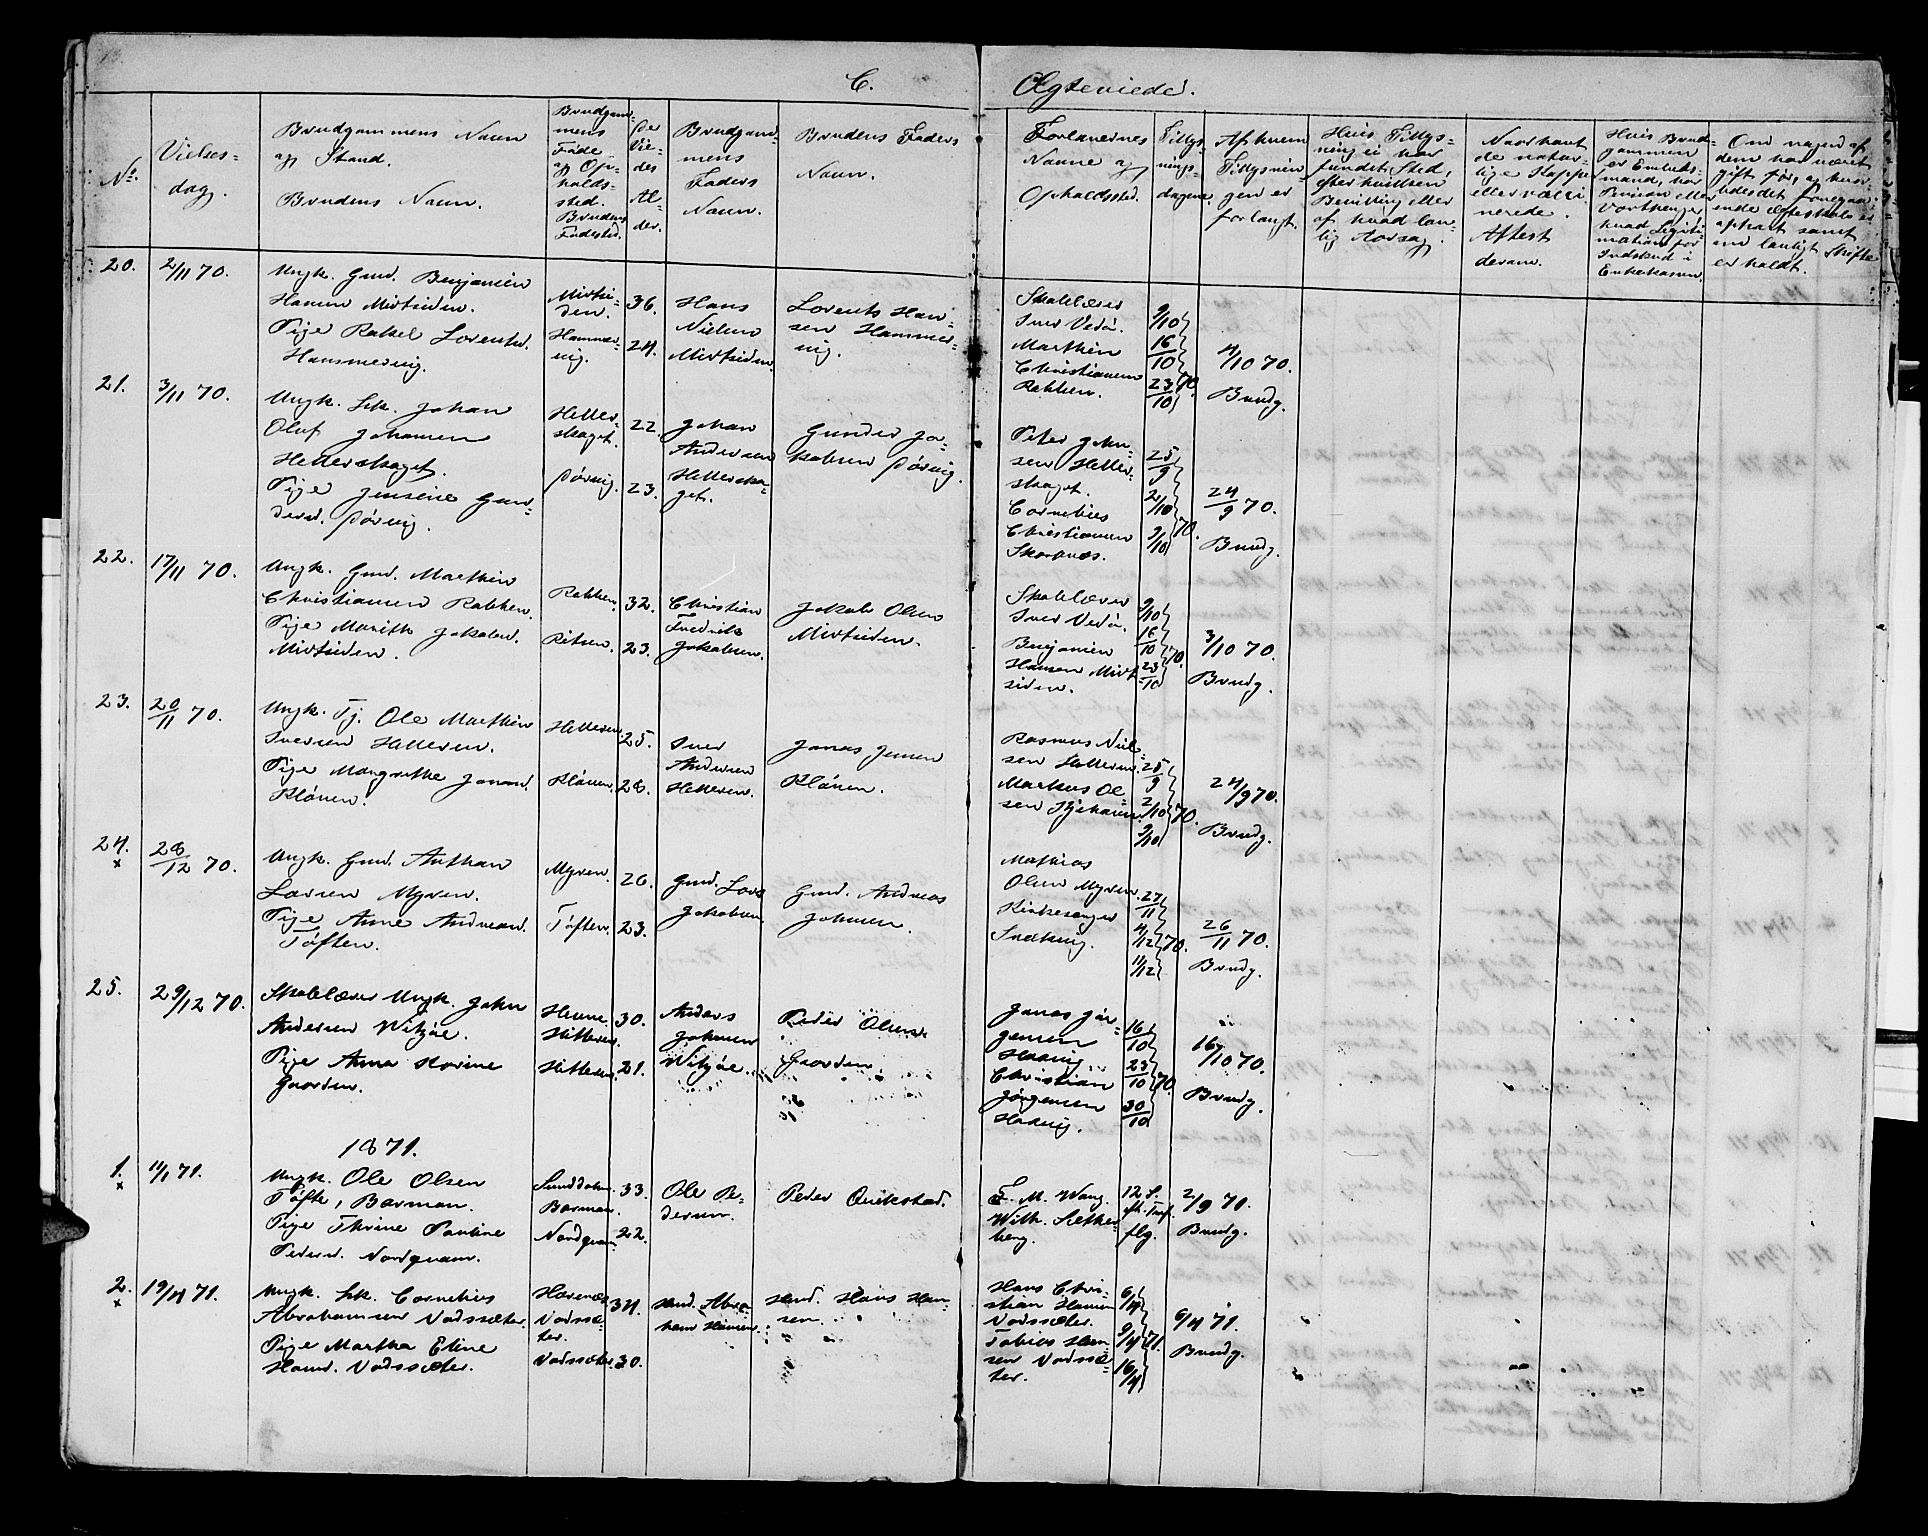 C.
Ægteviede.
No.
Vielses-
dag.
Brudgommens Navn
og Stand.
Brudens Navn.
Brudgom-
mens
Føde
og Op-
holds-
sted.
Brudens
Fødested.
De
Vie-
des
Al-
der.
Brudgom-
mens
Faders
Navn.
Brudens Faders
Navn.
Forlovernes
Navne og
Opholdssted.
Tillys-
nings-
dagene.
Af hvem
Tillysnin-
gen er
forlangt.
Hvis Tillys-
ning ei har
fundet Sted,
efter hvilken
Bevilling eller
af hvad lov-
lig Aarsag.
Naar havt
de natur-
lige Kopper
eller vacci-
nerede.
Attest
derom.
Hvis Brud-
gommen
er Embeds-
mand, har
Pension eller
Vartpenge,
hvad Legiti-
mation for
Indskud i
Enkekassen.
Om nogen af
dem har været
gift før, og hvor-
ledes det foregaa-
ende Ægteskab er
ophørt samt
om lovligt Skifte
er holdt.
20.
2/11 70.
Ungk. Gmd. Benjamin
Hansen Mirtsiden.
Pige Rakel Lorentsd.
Hammervig.
Mirtsi-
den.
Hammer-
vig.
36.
24.
Hans
Nielsen
Mirtsiden.
Lorents Han-
sen Hammer-
vig.
Skolelærer
Iver Vedø.
Marthin
Christiansen
Rabben.
9/10
16/10
23/10
70.
4/10 70.
Brudg.
21.
3/11 70.
Ungk. Stk. Johan
Oluf Johansen
Helterskaget.
Pige Jensine Gun-
dersd. Børvig.
Helter-
skaget.
Børvig.
22.
23.
Johan
Andersen
Helterska-
get.
Gunder Ja-
kobsen Børvig.
Peter John-
sen Helter-
skaget.
Cornelius
Christiansen
Skarvnes.
25/9
2/10
9/10
70.
24/9 70.
Brudg.
22.
17/11 70.
Ungk. Gmd. Marthin
Christiansen Rabben.
Pige Marith Jakobsd.
Mirtsiden.
Rabben.
Ritsen.
32.
23.
Christian
Fredrik
Jakobsen.
Jakob Olsen
Mirtsiden.
Skolelærer
Iver Vedø.
Benjamin
Hansen Mirt-
siden.
9/10
16/10
23/10
70.
3/10 70.
Brudg.
23.
20/11 70.
Ungk. Tj. Ole Marthin
Iversen Helleren.
Pige Margrethe Jonasd.
Kløven.
Helleren.
Kløven.
25.
28.
Iver
Andersen
Helleren.
Jonas Jensen
Kløven.
Rasmus Niel-
sen Helleren.
Markus Ol-
sen
25/9
2/10
9/10
70.
24/9 70.
Brudg.
24.
x
28/12 70.
Ungk. Gmd. Anthon
Larsen Myren.
Pige Anne Andreasd.
Tøften.
Myren.
Tøften.
26.
23.
Gmd. Lars
Jakobsen.
Gmd. Andreas
Johnsen.
Mathias
Olsen Myren.
Kirkesanger
27/11
4/12
11/12
70.
26/11 70.
Brudg.
25.
29/12 70.
Skolelærer Ungk. John
Andersen Witsøe.
Pige Anna Karine
Gaarden.
Hevne.
Hitteren.
Hitteren.
30.
21.
Anders
Johnsen
Witsøe.
Peder Olsen
Gaarden.
Jonas Jør-
gensen
Havnvig.
Christian
Jørgensen
Havnvig.
16/10
23/10
30/10
70.
16/10 70.
Brudg.
1871.
1.
x
11/1 71.
Ungk. Ole Olsen
Tøfte, Barman.
Pige Thrine Pauline
Pedersd. Nordqvam.
Sunddalen.
Barman.
Nordqvam.
33.
22.
Ole Pe-
dersen.
Peder Qvikstad.
F. M. Wang.
Wilh. Sether-
berg.
2/9 71.
Brudg.
2.
x
19/4 71.
Ungk. Stk. Cornelius
Abrahamsen Vadssæter.
Pige Martha Eline
Hansd. Vadssæter.
Havenæs.
Vadssæ-
ter.
Vadssæter.
34.
30.
Hmd. Abra-
ham Hansen.
Hmd. Hans Han-
sen.
Hans Chri-
stian Hansen
Vadssæter.
Tobias Han-
sen Vadssæ-
ter.
6/4
9/4
16/4
71.
6/4 71.
Brudg.